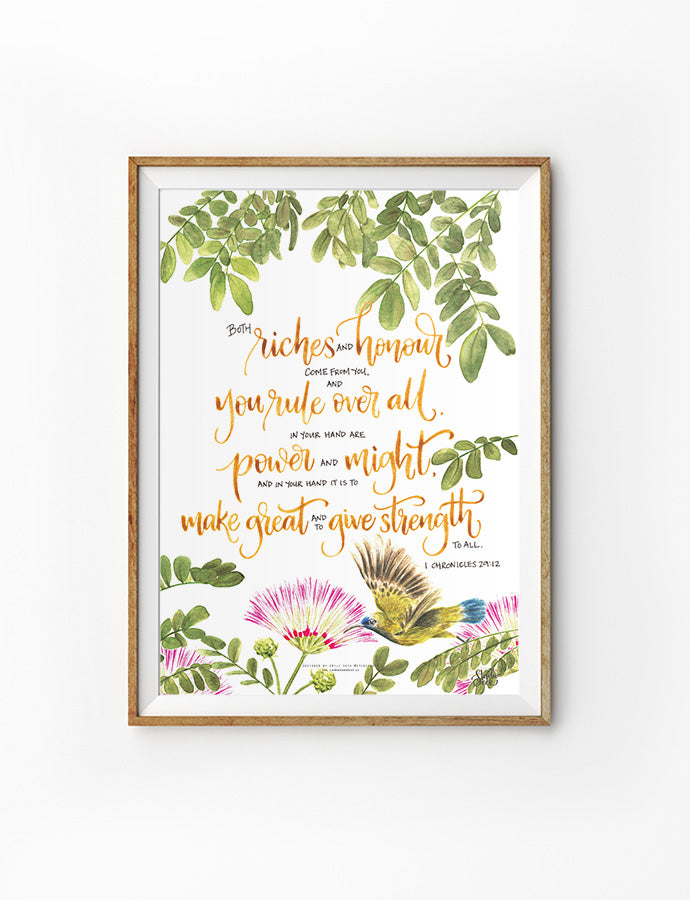 BOTH riches AND honour
COME FROM YOU,
AND
you rule over all.
IN YOUR HAND ARE
power AND might,
AND IN YOUR HAND IT IS TO
make great AND TO give strength
TO ALL.
1 CHRONICLES 29:12